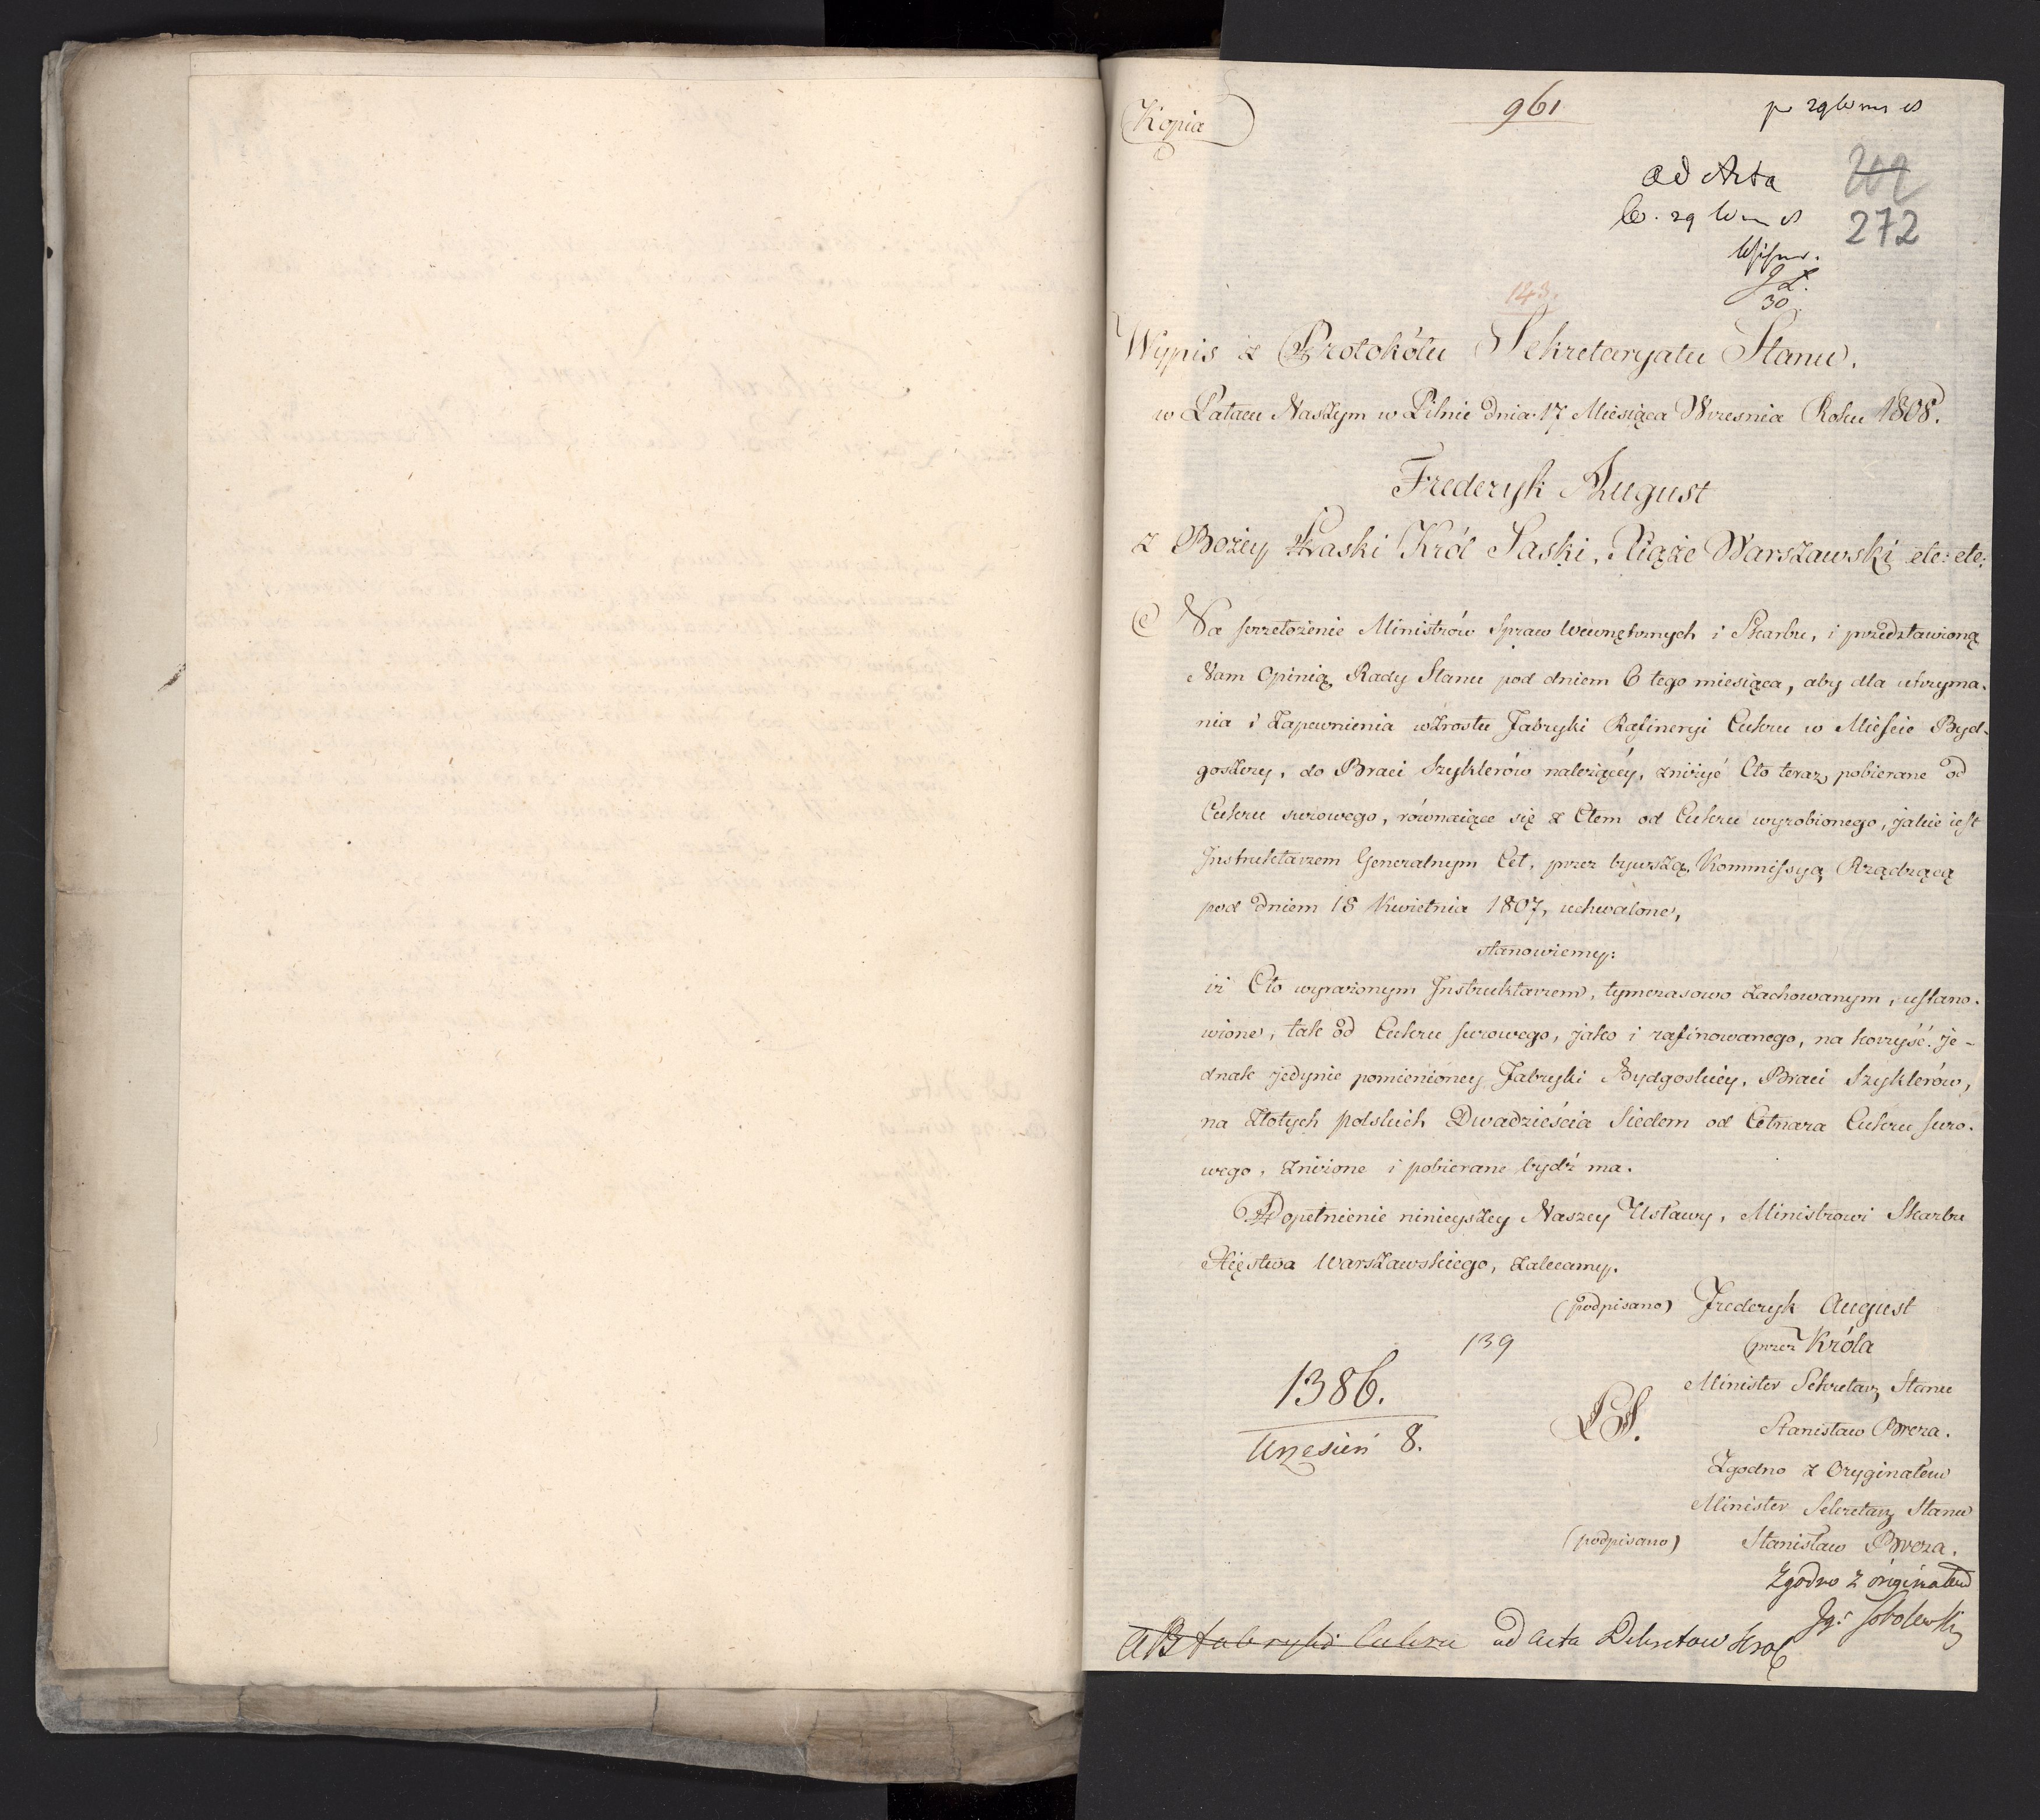 Kopia
961
ad Acta
272
143.
30
Wypis z Protokółu Sekretaryatu Stanu.
w Pałacu Naszym w Pilnie dnia 17 Miesiąca Wresnia Roku 1808.
Frederyk August
z Bożey Łaski Król Saski, Xiąże Warszawski etc: etc:
Na przełożenie Ministrów Spraw Wewnętrznych i Skarbu, i przedstawioną
Nam Opinią Rady Stanu pod dniem 6 tego miesiąca, aby dla utrzyma-
nia i Zapewnienia wzrostu Fabryki Rafineryi Cukru w Mieście Byd-
goszczy, do Braci Szyklerów należący, zniżyć Cło teraz pobierane od
Cukru surowego, równaiące się z Cłem od Cukru wyrobionego, jakie iest
Instruktarzem Generalnym Ceł, przez bywszą Kommissyą Rządzącą
pod dniem 18 Kwietnia 1807, uchwalone,
stanowiemy:
iż Cło wyrażonym Instruktarzem, tymczasowo zachowanym, ustano-
wione, tak od Cukru surowego, jako i rafinowanego, na korzyść je-
dnak jedynie pomienioney Fabryki Bydgoskiey, Braci Szyklerów,
na Złotych polskich Dwadzieścia Siedem od Cetnara Cukru suro-
wego, zniżone i pobierane bydź ma.
Dopełnienie ninieyszey Naszey Ustawy, Ministrowi Skarbu
Xięstwa Warszawskiego, zalecamy.
(podpisano) Frederyk August
139
przez Króla
1386.
Minister Sekretarz Stanu
LS.
Wrzesień 8.
Stanisław Breza.
Zgodno z Oryginałem
Minister Sekretarz Stanu
(podpisano) Stanisław Breza.
Zgodno z originałem
Ig: Sobolewski
Fabryki Cukru ad Acta Dekretow Krol